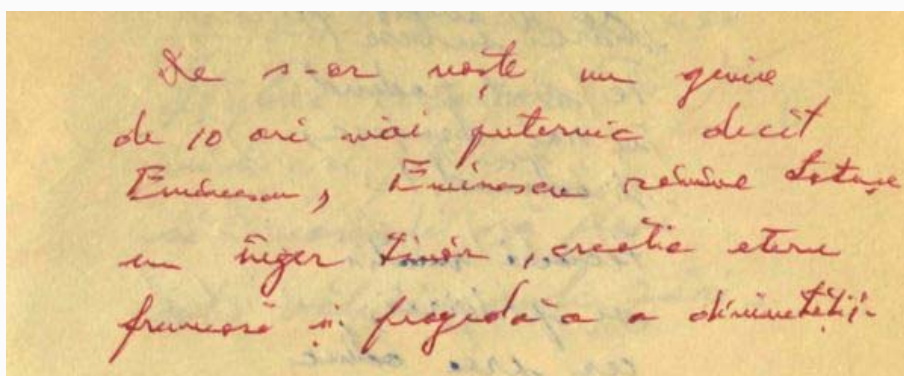 De s-ar naște un geniu
de 10 ori mai puternic decît
Eminescu, Eminescu rămîne totuși
un înger tînăr, creație etern
frumoasă și a divinității.